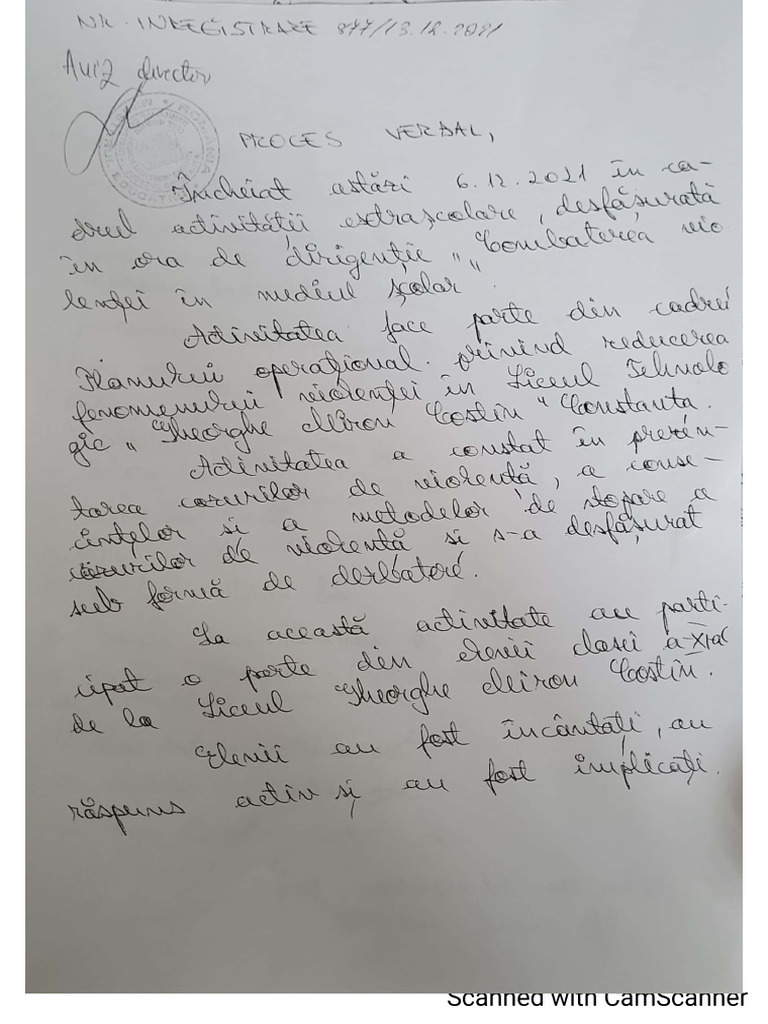 NR. INREGISTRARE 877/13.12.2021
Aviz director
ROMANIA
PROCES VERBAL,
Încheiat astăzi 6.12.2021 în ca-
drul activității extrașcolare, desfășurată
în ora de dirigenție „Combaterea vio
lenței în mediul școlar
Activitatea face parte din cadrul
Planului operațional privind reducerea
fenomenului violenței în Liceul Tehnolo
gic „Gheorghe Miron Costin" Constanta.
Activitatea a constat în prezen-
tarea cazurilor de violentă, a conse-
cintelor si a metodelor de stopare a
cazurilor de violentă si s-a desfășurat
sub formă de dezbatere.
La această activitate au parti-
cipat o parte din elevii clasei a-XI a
de la Liceul Gheorghe Miron Costin.
Elevii au fost încântați, au
răspuns activ și au fost implicați.
Scanned with CamScanner